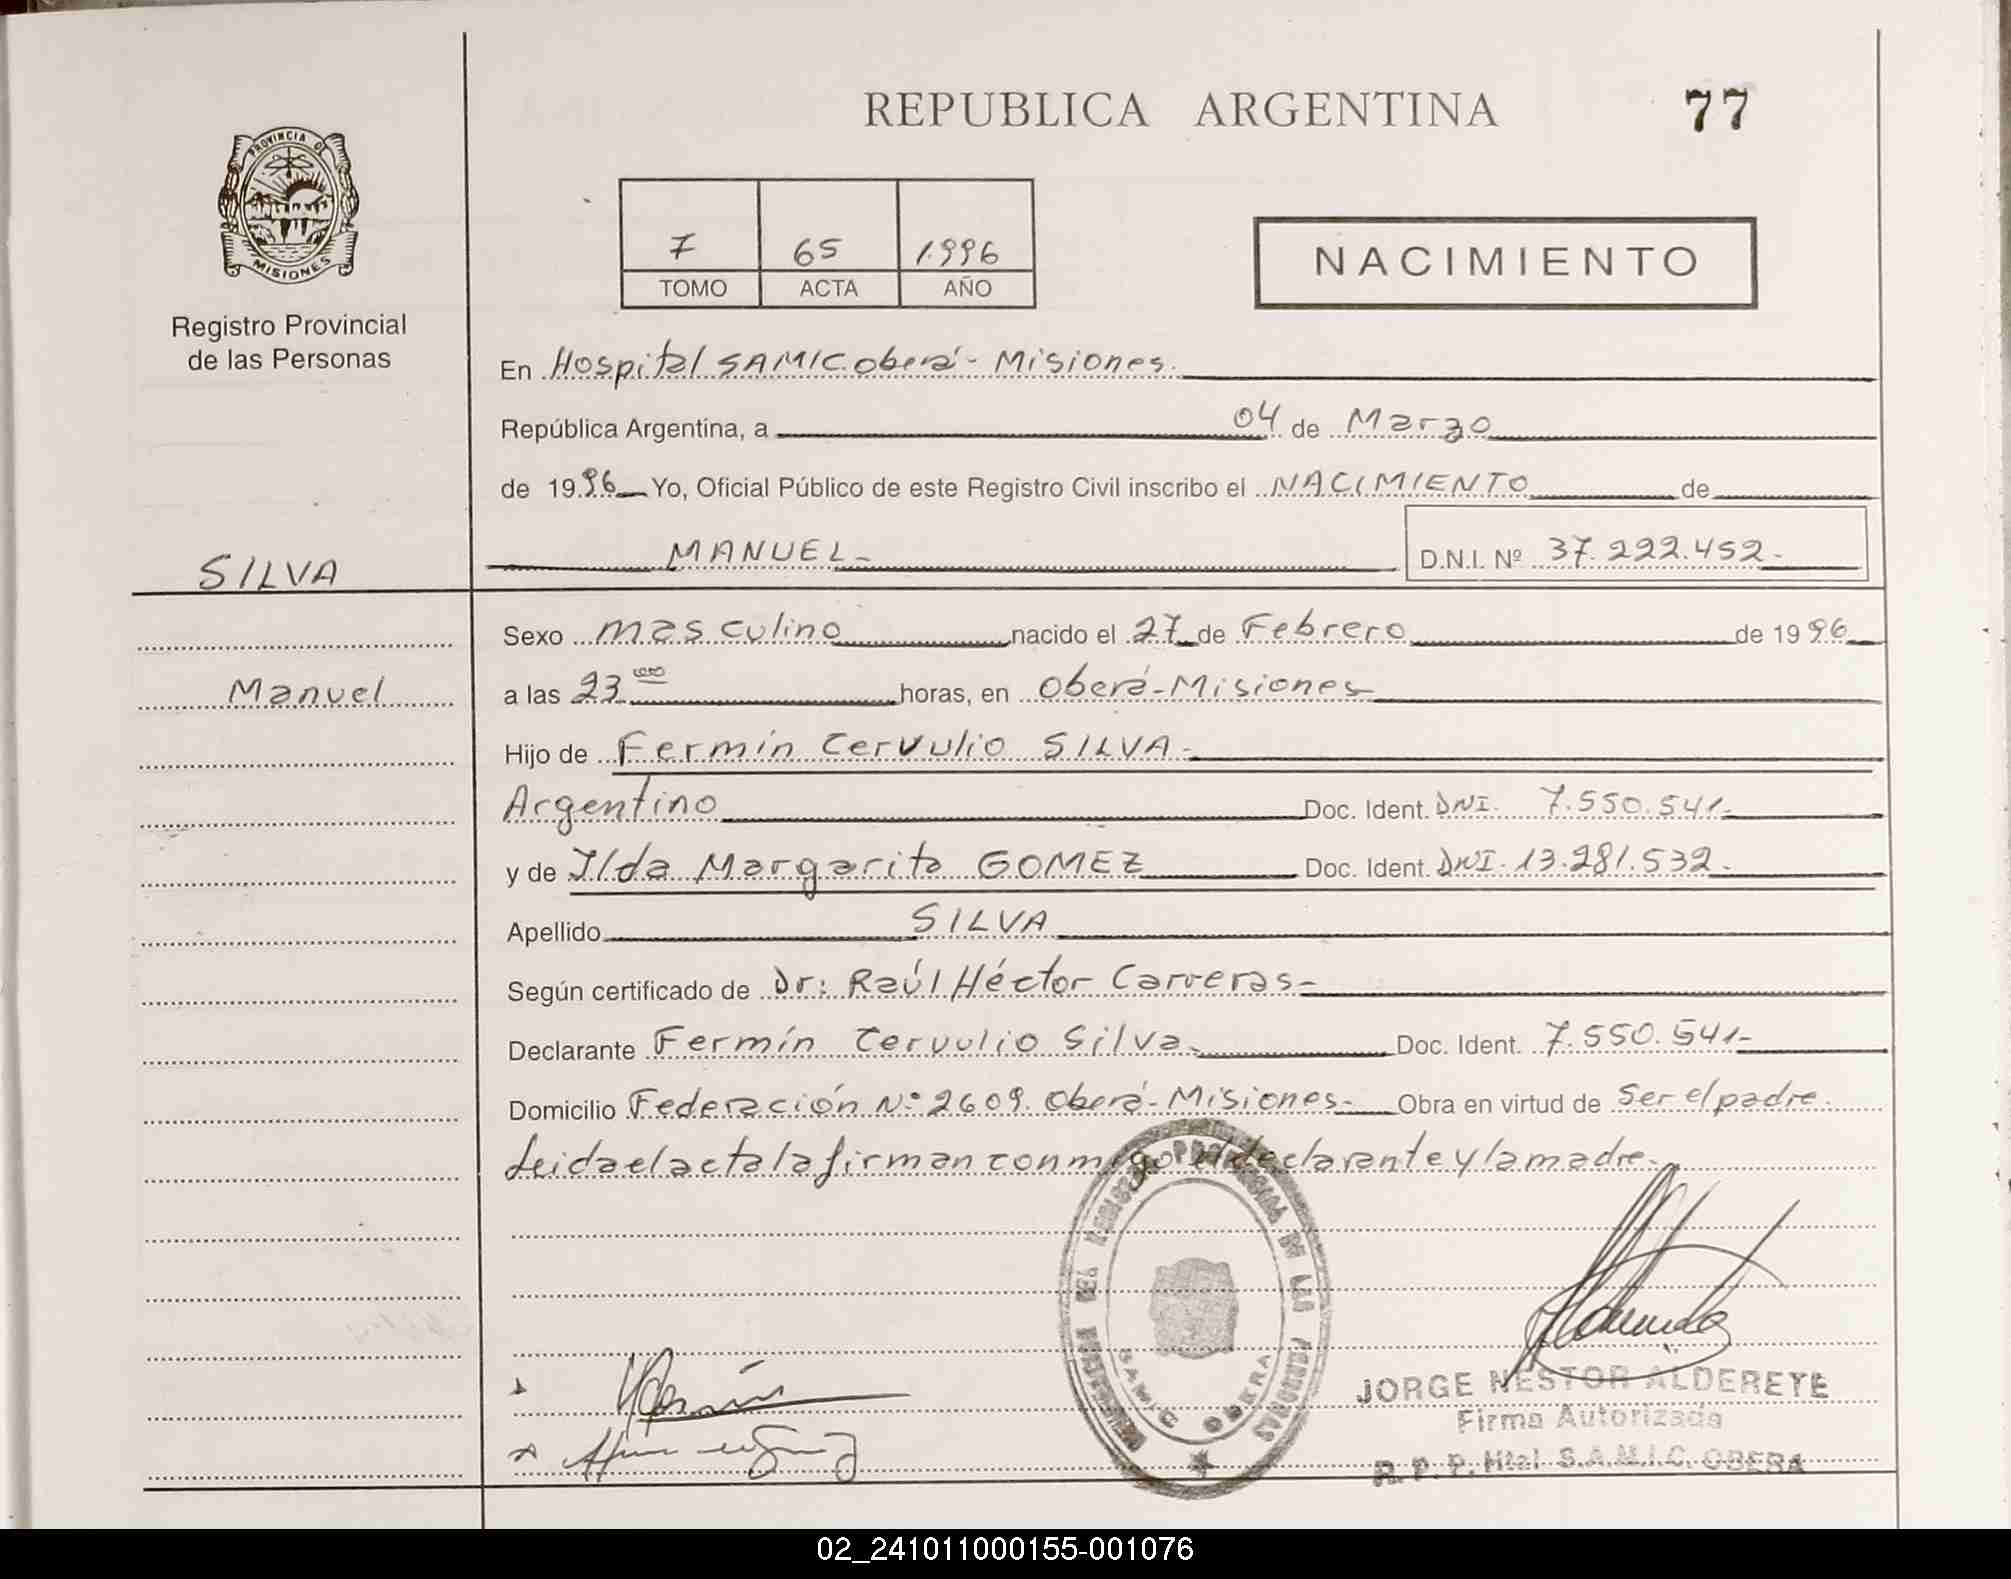 REPUBLICA ARGENTINA
77
PROVINCIA DE
MISIONES
Registro Provincial
de las Personas
7 65 1.996
TOMO ACTA AÑO
NACIMIENTO
En Hospital SAMIC oberá- Misiones.
República Argentina, a 04 de Marzo
de 1996 Yo, Oficial Público de este Registro Civil inscribo el NACIMIENTO de
SILVA
MANUEL- D.N.I. Nº 37.222.452-
Sexo masculino nacido el 27 de Febrero de 1996
Manuel
a las 23 ººº horas, en Oberá-Misiones
Hijo de Fermín Cervulio SILVA-
Argentino Doc. Ident. DNI. 7.550.541-
y de Ilda Margarita GOMEZ Doc. Ident. DNI. 13.281.532-
Apellido SILVA
Según certificado de Dr: Raúl Héctor Carreras-
Declarante Fermín Cervulio Silva- Doc. Ident. 7.550.541-
Domicilio Federación Nº 2609. Oberá-Misiones- Obra en virtud de Ser el padre.
Leida el acta la firman conmigo el declarante y la madre-
SAMIC OBERA
JORGE NESTOR ALDERETE
Firma Autorizada
R. P. P. Htal S.A.M.I.C. OBERA
02_241011000155-001076